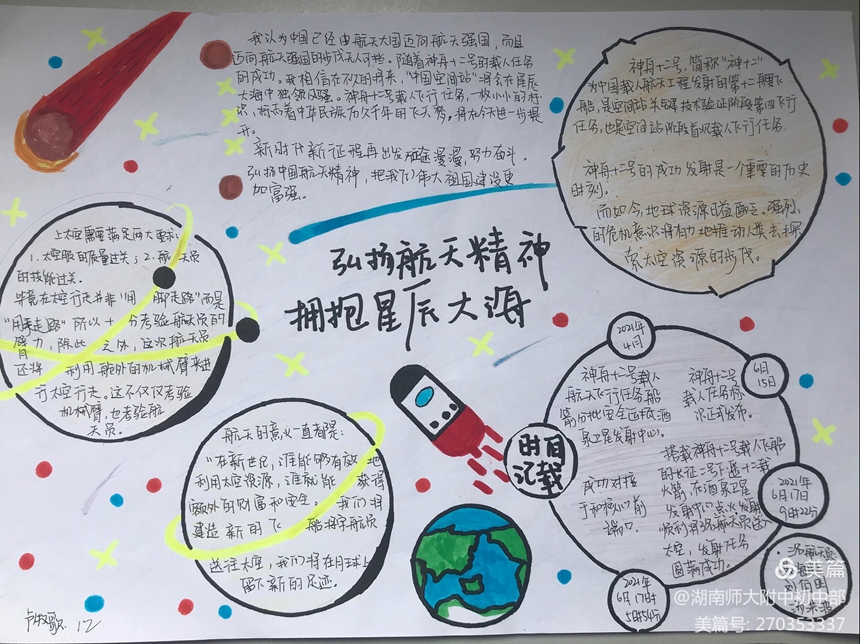 我认为中国已经由航天大国迈向航天强国，而且
迈向航天强国的步伐无人可挡。随着神舟十二号的载人任务
的成功。我相信在不久的将来，“中国空间站”将会在星辰
大海中独领风骚。神舟十二号载人飞行任务，一枚小小的标
识，标志着中华民族历久千年的飞天梦，将在今天进一步展
开。
新时代新征程再出发征途漫漫，努力奋斗。
弘扬中国航天精神，把我们伟大祖国建设更
加富强。
神舟十二号，简称“神十二”
为中国载人航天工程发射的第十二艘飞
船，是空间站关键技术验证阶段第四飞行
任务，也是空间站阶段首次载人飞行任务.
神舟十二号的成功发射是一个重要的历史
时刻。
而如今，地球资源日益匮乏。强烈
的危机意识将有力地推动人类去探
索太空资源的步伐。
弘扬航天精神
拥抱星辰大海
上太空需要满足两大要
1.太空服的质量过关；2.航天员
的技能过关。
毕竟在太空行走并非“用脚走路”而是
“用手走路”所以十分考验航天员的
臂力，除此之外，这次航天员
还将利用舱外的机械臂来进
行太空行走。这不仅仅考验
机械臂，也考验航
天员。
航天的意义一直都是：
“在新世纪，谁能够有效地
利用太空资源，谁就能获得
额外的财富和安全，我们将
建造新的飞船将宇航员
送往太空，我们将在月球上
留下新的足迹。
时间
记载
2021年
4月
神舟十二号载人
航天飞行任务船
箭分批安全运抵酒
泉卫星发射中心。
6月
15日
神舟十二号
载人任务标
识正式发布。
2021年
6月17日
9时22分
搭载神舟十二号载人飞船
的长征二号F遥十二载
火箭，在酒泉卫星
发射中心点火发射
顺利将3名航天员送入
太空，发射任务
圆满成功。
2021年
6月17日
15时54分
成功对接
于和核心前
端口。
3名航天员
刘伯明
卢牧歌 12
美篇
@湖南师大附中初中部
美篇号: 270353337